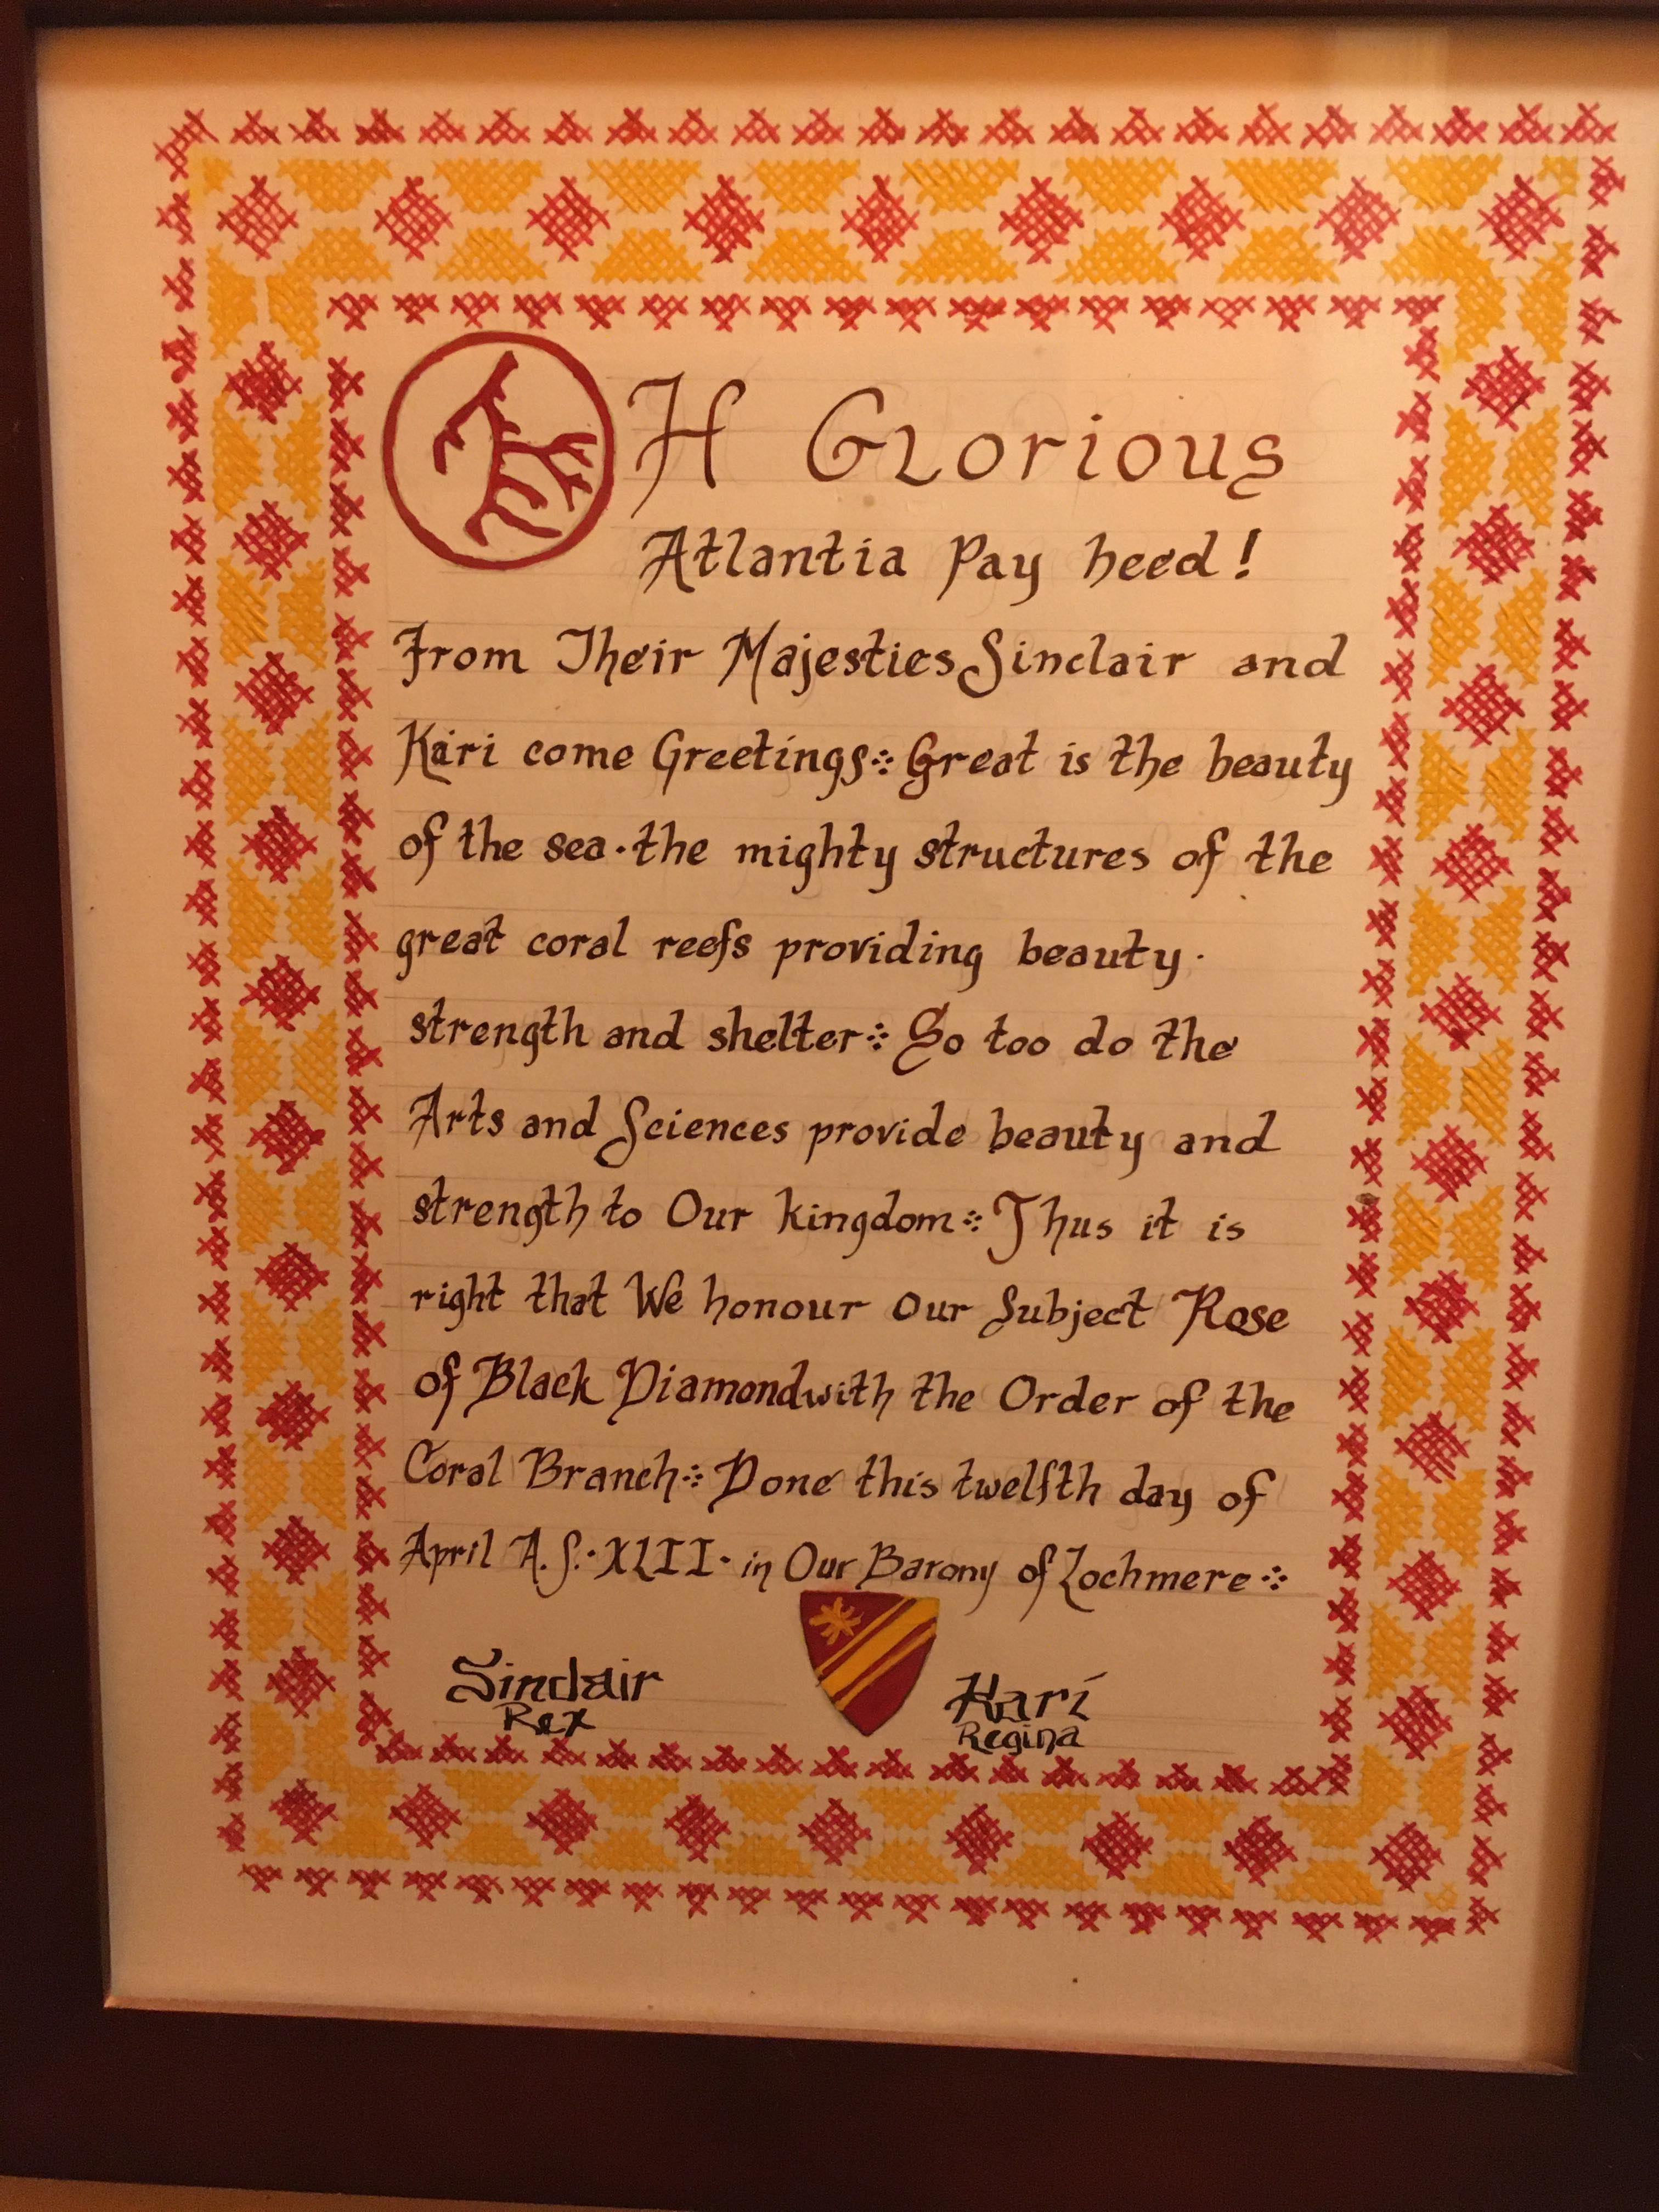 OH Glorious
Atlantia Pay heed!
From Their Majesties Sinclair and
Kári come Greetings⁘ Great is the beauty
of the sea · the mighty structures of the
great coral reefs providing beauty ·
strength and shelter⁘ So too do the
Arts and Sciences provide beauty and
strength to Our kingdom⁘ Thus it is
right that We honour our Subject Rose
of Black Diamond with the Order of the
Coral Branch⁘ Done this twelfth day of
April A.S. · XLII · in Our Barony of Lochmere⁘
Sinclair
Rex
Kari
Regina